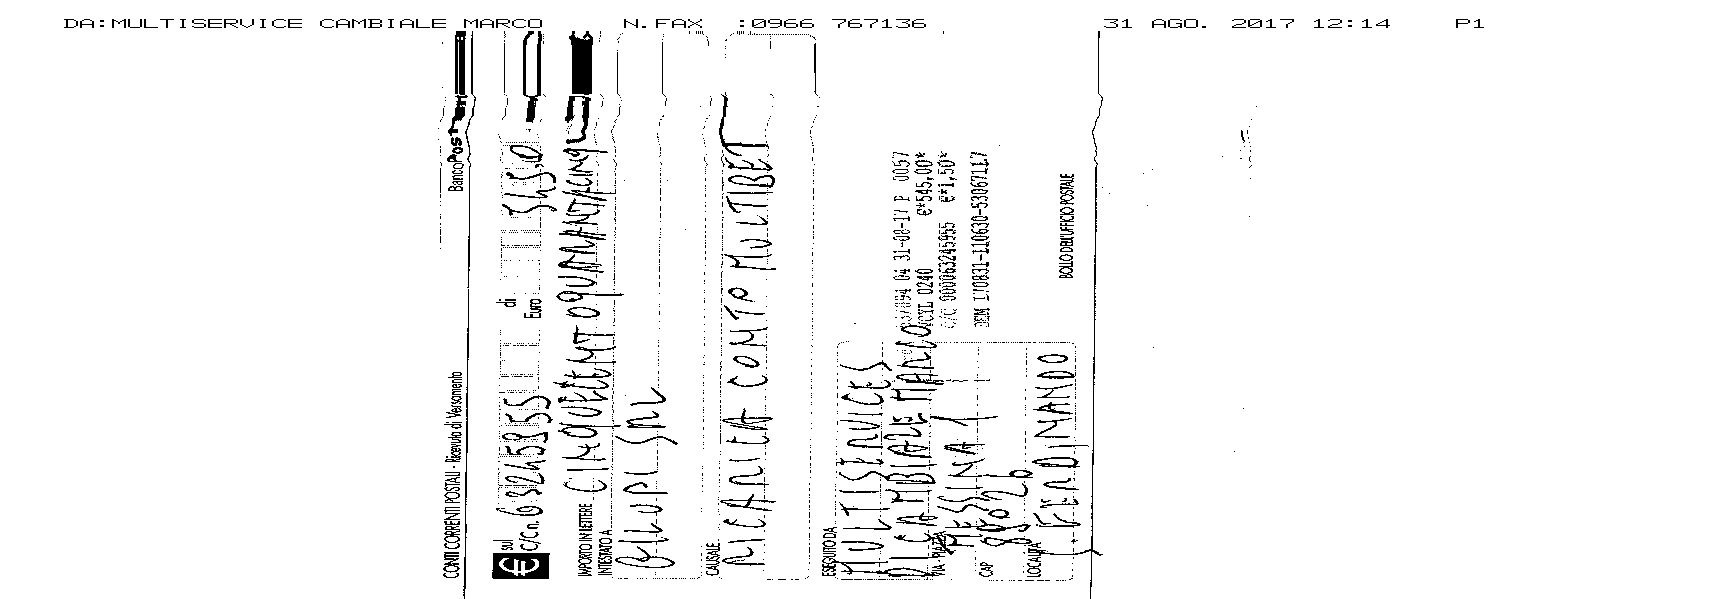 DA:MULTISERVICE CAMBIALE MARCO N.FAX :0966 767136 31 AGO. 2017 12:14 P1
CONTI CORRENTI POSTALI - Ricevuta di Versamento BancoPost
€ sul C/C n. 63245955 di Euro 545,0
IMPORTO IN LETTERE CINQUECENTOQUARANTACINQ
INTESTATO A
BLUOPI SRL
CAUSALE
RICARICA CONTO MULTIBET
ESEGUITO DA
MULTISERVICES
DI CAMBIALE MARCO
VIA - PIAZZA MESSINA 1
CAP 89026
LOCALITÀ S. FERDINANDO
04 31-08-17 P 0057
VCYL 0240 €*545,00*
C/C 000063245955 €*1,50*
BEM 170831-110630-53067117
BOLLO DELL'UFFICIO POSTALE